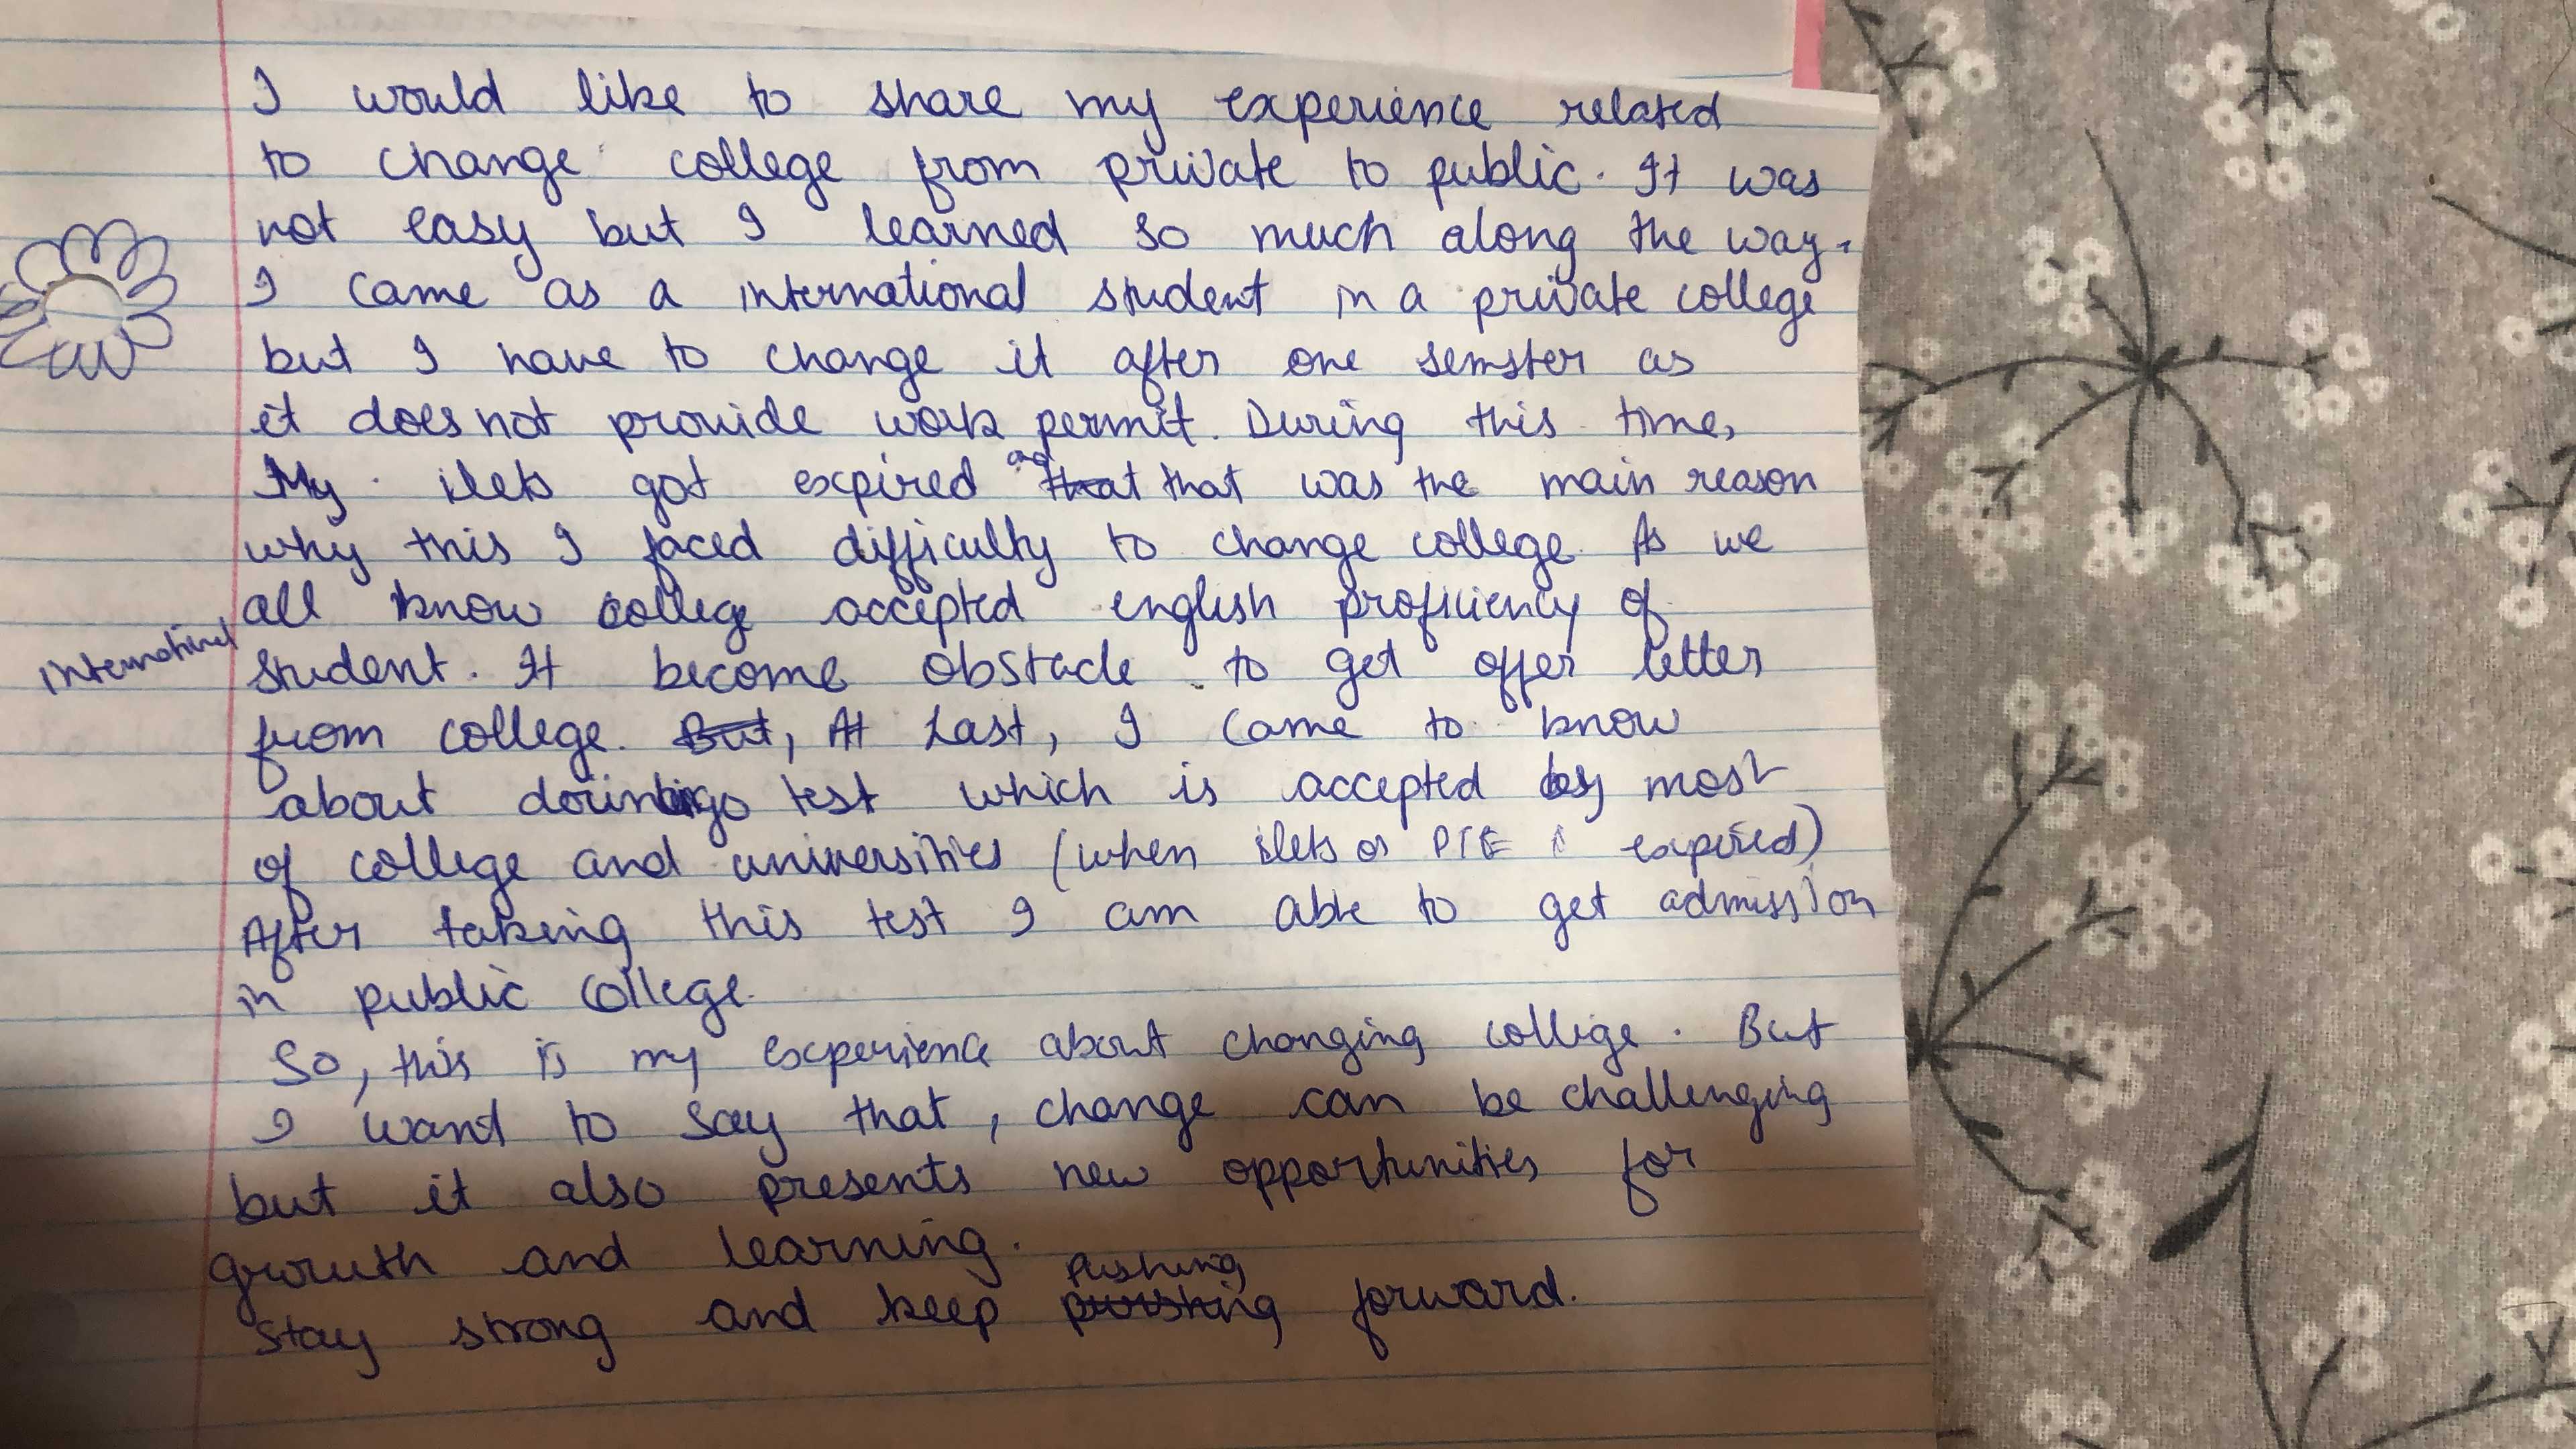 I would like to share my experience related
to change college from private to public. It was
not easy but I learned so much along the way.
I came as a international student in a private college
but I have to change it after one semster as
it does not provide work permit. During this time,
My ilets got expired and that was the main reason
why this I faced difficulty to change college. As we
all know college accepted english proficiency of
international student. It become obstacle to get offer letter
from college. But, At Last, I came to know
about test which is accepted by most
of college and universities (when ilets or PTE expired)
After taking this test I am able to get admission
in public college.
So, this is my experience about changing college. But
I want to say that, change can be challenging
but it also presents new opportunities for
growth and learning.
Stay strong and keep pushing forward.